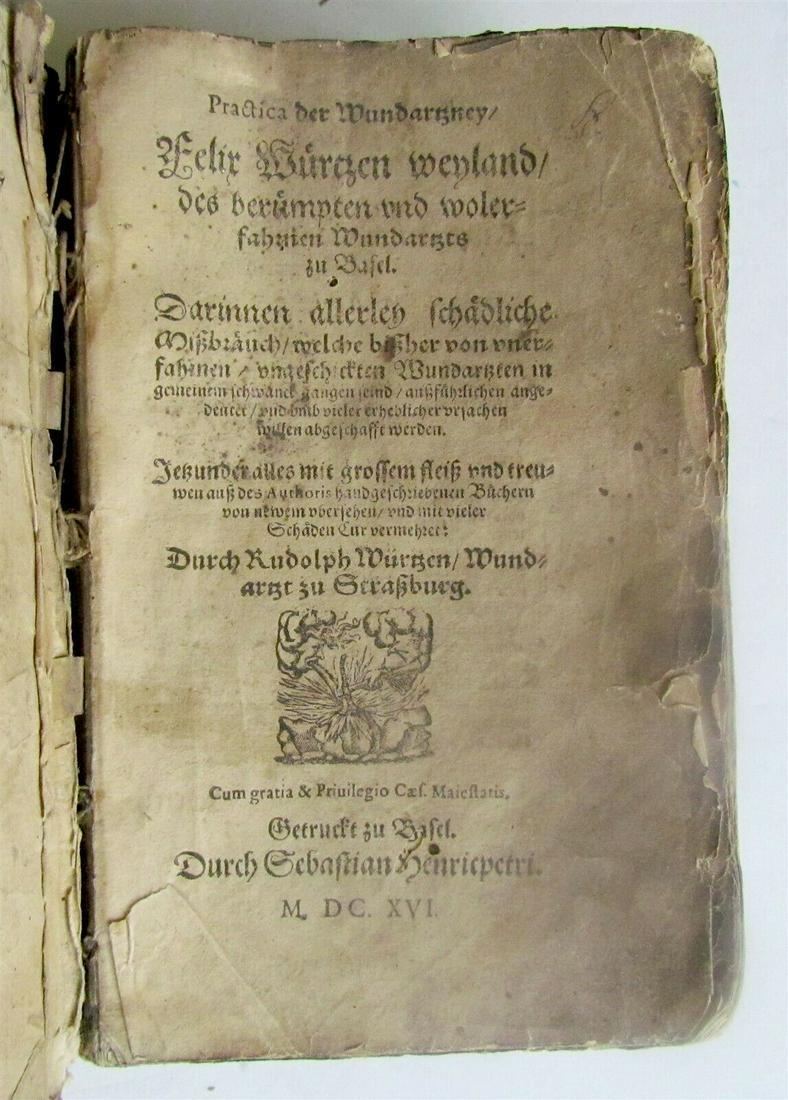 Practica der Wundartzney/
Felix Würtzen weyland/
des berümpten vnd woler⸗
fahrnen Wundartzts
zu Basel.
Darinnen allerley schädliche
Mißbräuch/welche bißher von vner⸗
fahrnen/ vngeschickten Wundartzten in
gemeinem schwanck gangen seind/außführlichen ange⸗
deutet/vnd vmb vieler erheblicher vrsachen
willen abgeschafft werden.
Jetzunder alles mit grossem fleiß vnd treu⸗
wen auß des Authoris handgeschriebenen Büchern
von newem vbersehen/ vnd mit vieler
Schäden Cur vermehret:
Durch Rudolph Würtzen/ Wund⸗
artzt zu Straßburg.
Cum gratia & Priuilegio Cæs. Maiestatis.
Getruckt zu Basel.
Durch Sebastian Henricpetri.
M. DC. XVI.